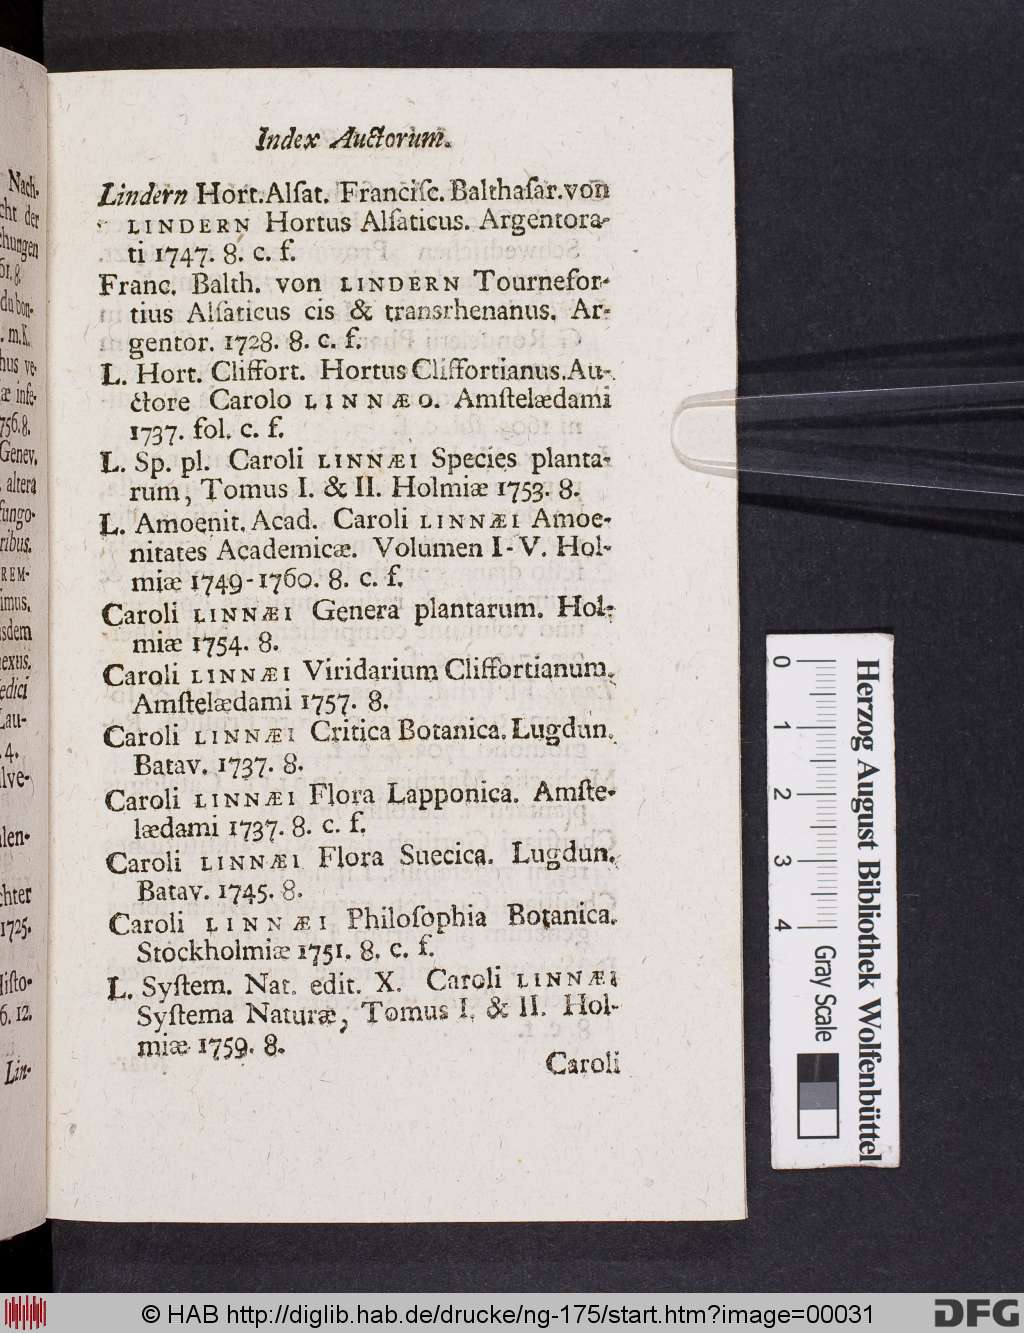 Index Auctorum.
Lindern Hort. Alſat. Franciſc. Balthaſar. von
LINDERN Hortus Alſaticus. Argentora-
ti 1747. 8. c. f.
Franc. Balth. von LINDERN Tournefor-
tius Alſaticus cis & transrhenanus. Ar-
gentor. 1728. 8. c. f.
L. Hort. Cliffort. Hortus Cliffortianus. Au-
ctore Carolo LINNÆO. Amſtelædami
1737. fol. c. f.
L. Sp. pl. Caroli LINNÆI Species planta-
rum, Tomus I. & II. Holmiæ 1753. 8.
L. Amoenit. Acad. Caroli LINNÆI Amoe-
nitates Academicæ. Volumen I-V. Hol-
miæ 1749-1760. 8. c. f.
Caroli LINNÆI Genera plantarum. Hol-
miæ 1754. 8.
Caroli LINNÆI Viridarium Cliffortianum.
Amſtelædami 1757. 8.
Caroli LINNÆI Critica Botanica. Lugdun.
Batav. 1737. 8.
Caroli LINNÆI Flora Lapponica. Amſte-
lædami 1737. 8. c. f.
Caroli LINNÆI Flora Suecica. Lugdun.
Batav. 1745. 8.
Caroli LINNÆI Philoſophia Botanica.
Stockholmiæ 1751. 8. c. f.
L. Syſtem. Nat. edit. X. Caroli LINNÆI
Syſtema Naturæ, Tomus I. & II. Hol-
miæ 1759. 8.
Caroli
Nach-
cht der
chungen
61. 8.
du bon-
. m. K.
hus ve-
æ inſe-
756. 8.
Genev.
altera
fungo-
ribus.
REM-
imus.
sdem
nexus.
edici
Lau-
. 4.
lve-
alen-
chter
1725.
Hiſto-
6. 12.
Lin-
0 1 2 3 4
Gray Scale
Herzog August Bibliothek Wolfenbüttel
© HAB http://diglib.hab.de/drucke/ng-175/start.htm?image=00031
DFG